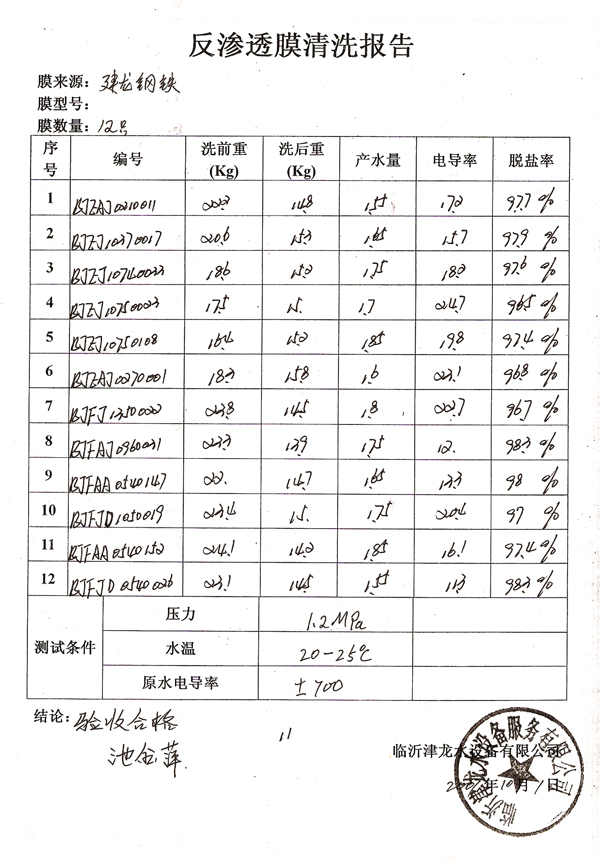 反渗透膜清洗报告
膜来源: 建龙钢铁
膜型号:
膜数量: 12只
序号 编号 洗前重(Kg) 洗后重(Kg) 产水量 电导率 脱盐率
1 BJZAJ0210011 20.2 14.8 1.55 17.2 97.7 %
2 BJZJ10370017 20.6 15.3 1.65 15.7 97.9 %
3 BJZJ10740023 18.6 15.2 1.75 18.2 97.6 %
4 BJZJ10750023 17.5 15. 1.7 24.7 96.5 %
5 BJZJ10750108 16.4 15.2 1.85 19.8 97.4 %
6 BJZAJ0270001 18.3 15.8 1.6 23.1 96.8 %
7 BJFJ1350022 23.8 14.5 1.8 22.7 96.7 %
8 BJFAJ0960031 23.3 13.9 1.75 12. 98.3 %
9 BJFAA0540147 22. 14.7 1.65 13.3 98 %
10 BJFJD1050019 23.4 15. 1.75 20.4 97 %
11 BJFAA0540152 24.1 14.2 1.85 16.1 97.4 %
12 BJFJD0540026 23.1 14.5 1.55 11.3 98.3 %
测试条件 压力 1.2MPa
水温 20-25℃
原水电导率 ±700
结论: 验收合格
临沂津龙水设备有限公司
年10月1日